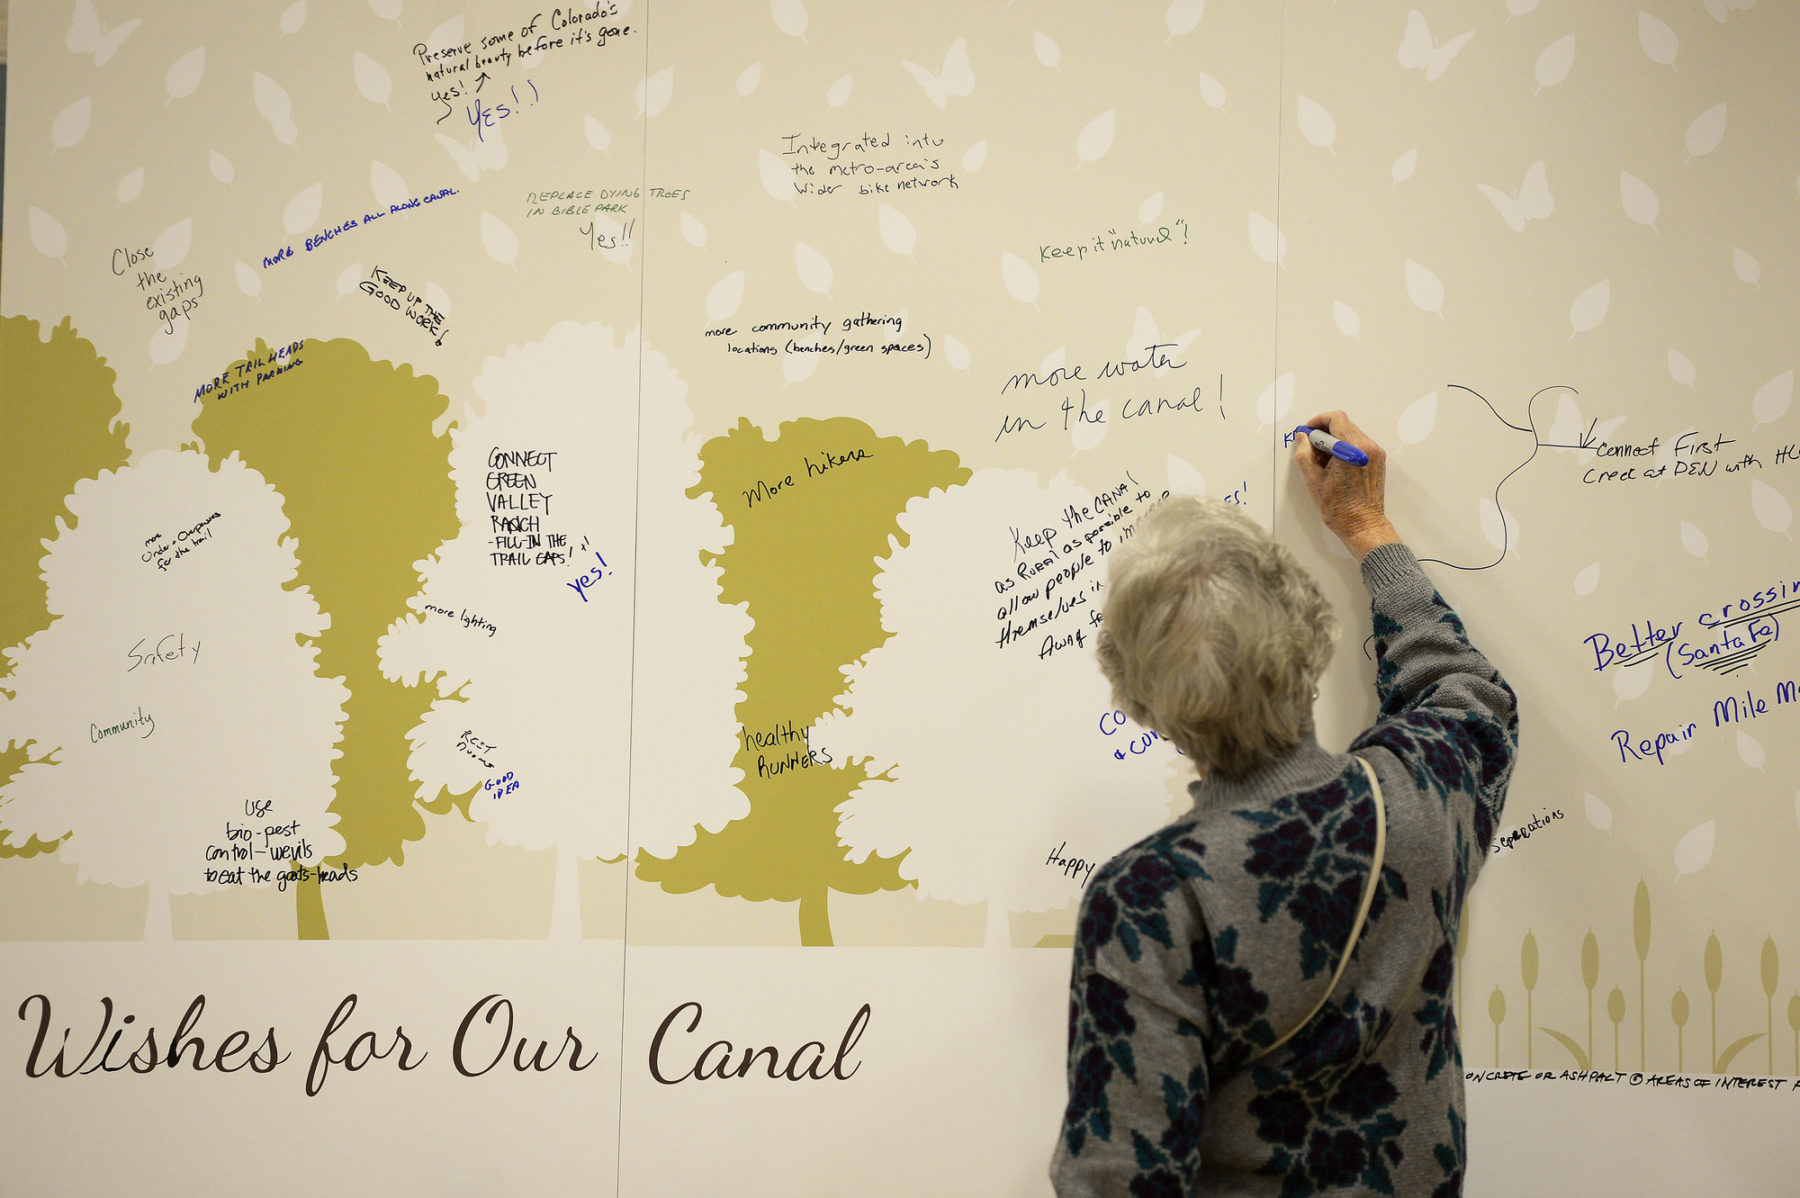 Preserve some of Colorado's
natural beauty before it's gone.
yes!
YES!!
Integrated into
the metro-area's
wider bike network
REPLACE DYING TREES
IN BIBLE PARK
Yes!!
MORE BENCHES ALL ALONG CANAL.
Close
the
existing
gaps
KEEP UP THE
GOOD WORK!
Keep it "natural"!
more community gathering
locations (benches/green spaces)
MORE TRAIL HEADS
WITH PARKING
more water
in the canal!
CONNECT
GREEN
VALLEY
RANCH
-FILL-IN THE
TRAIL GAPS! +1
yes!
More hikers
Connect First
Creek at DEN with
Keep the CANAL
as Rural as possible to
allow people to
themselves in
Away
more
Under + Overpasses
for the trail
more lighting
Safety
Better
(Santa Fe)
Repair Mile
Community
REST
rooms
GOOD
IDEA
healthy
RUNNERS
Use
bio-pest
control-wevils
to eat the goats-heads
Happy
seperations
Wishes for Our Canal
OR ASHPALT @ AREAS OF INTEREST